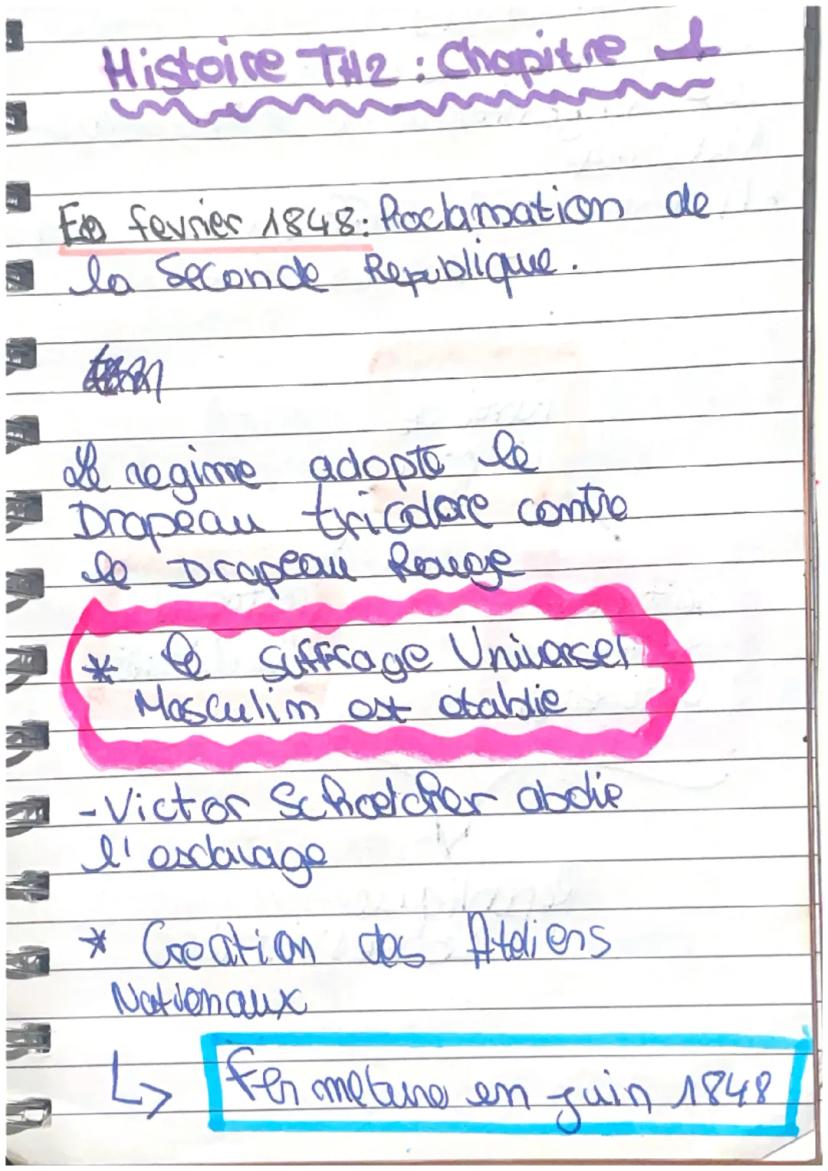 Histoire TH2 : Chapitre 1
En fevrier 1848 : Proclamation de
la Seconde Republique.
Le regime adopte le
Drapeau tricolore contre
le Drapeau Rouge
* le suffrage Universel
Masculin est etablie
- Victor Schoelcher abolie
l'esclavage
* Creation des Ateliers
Nationaux
↳ Fermeture en juin 1848